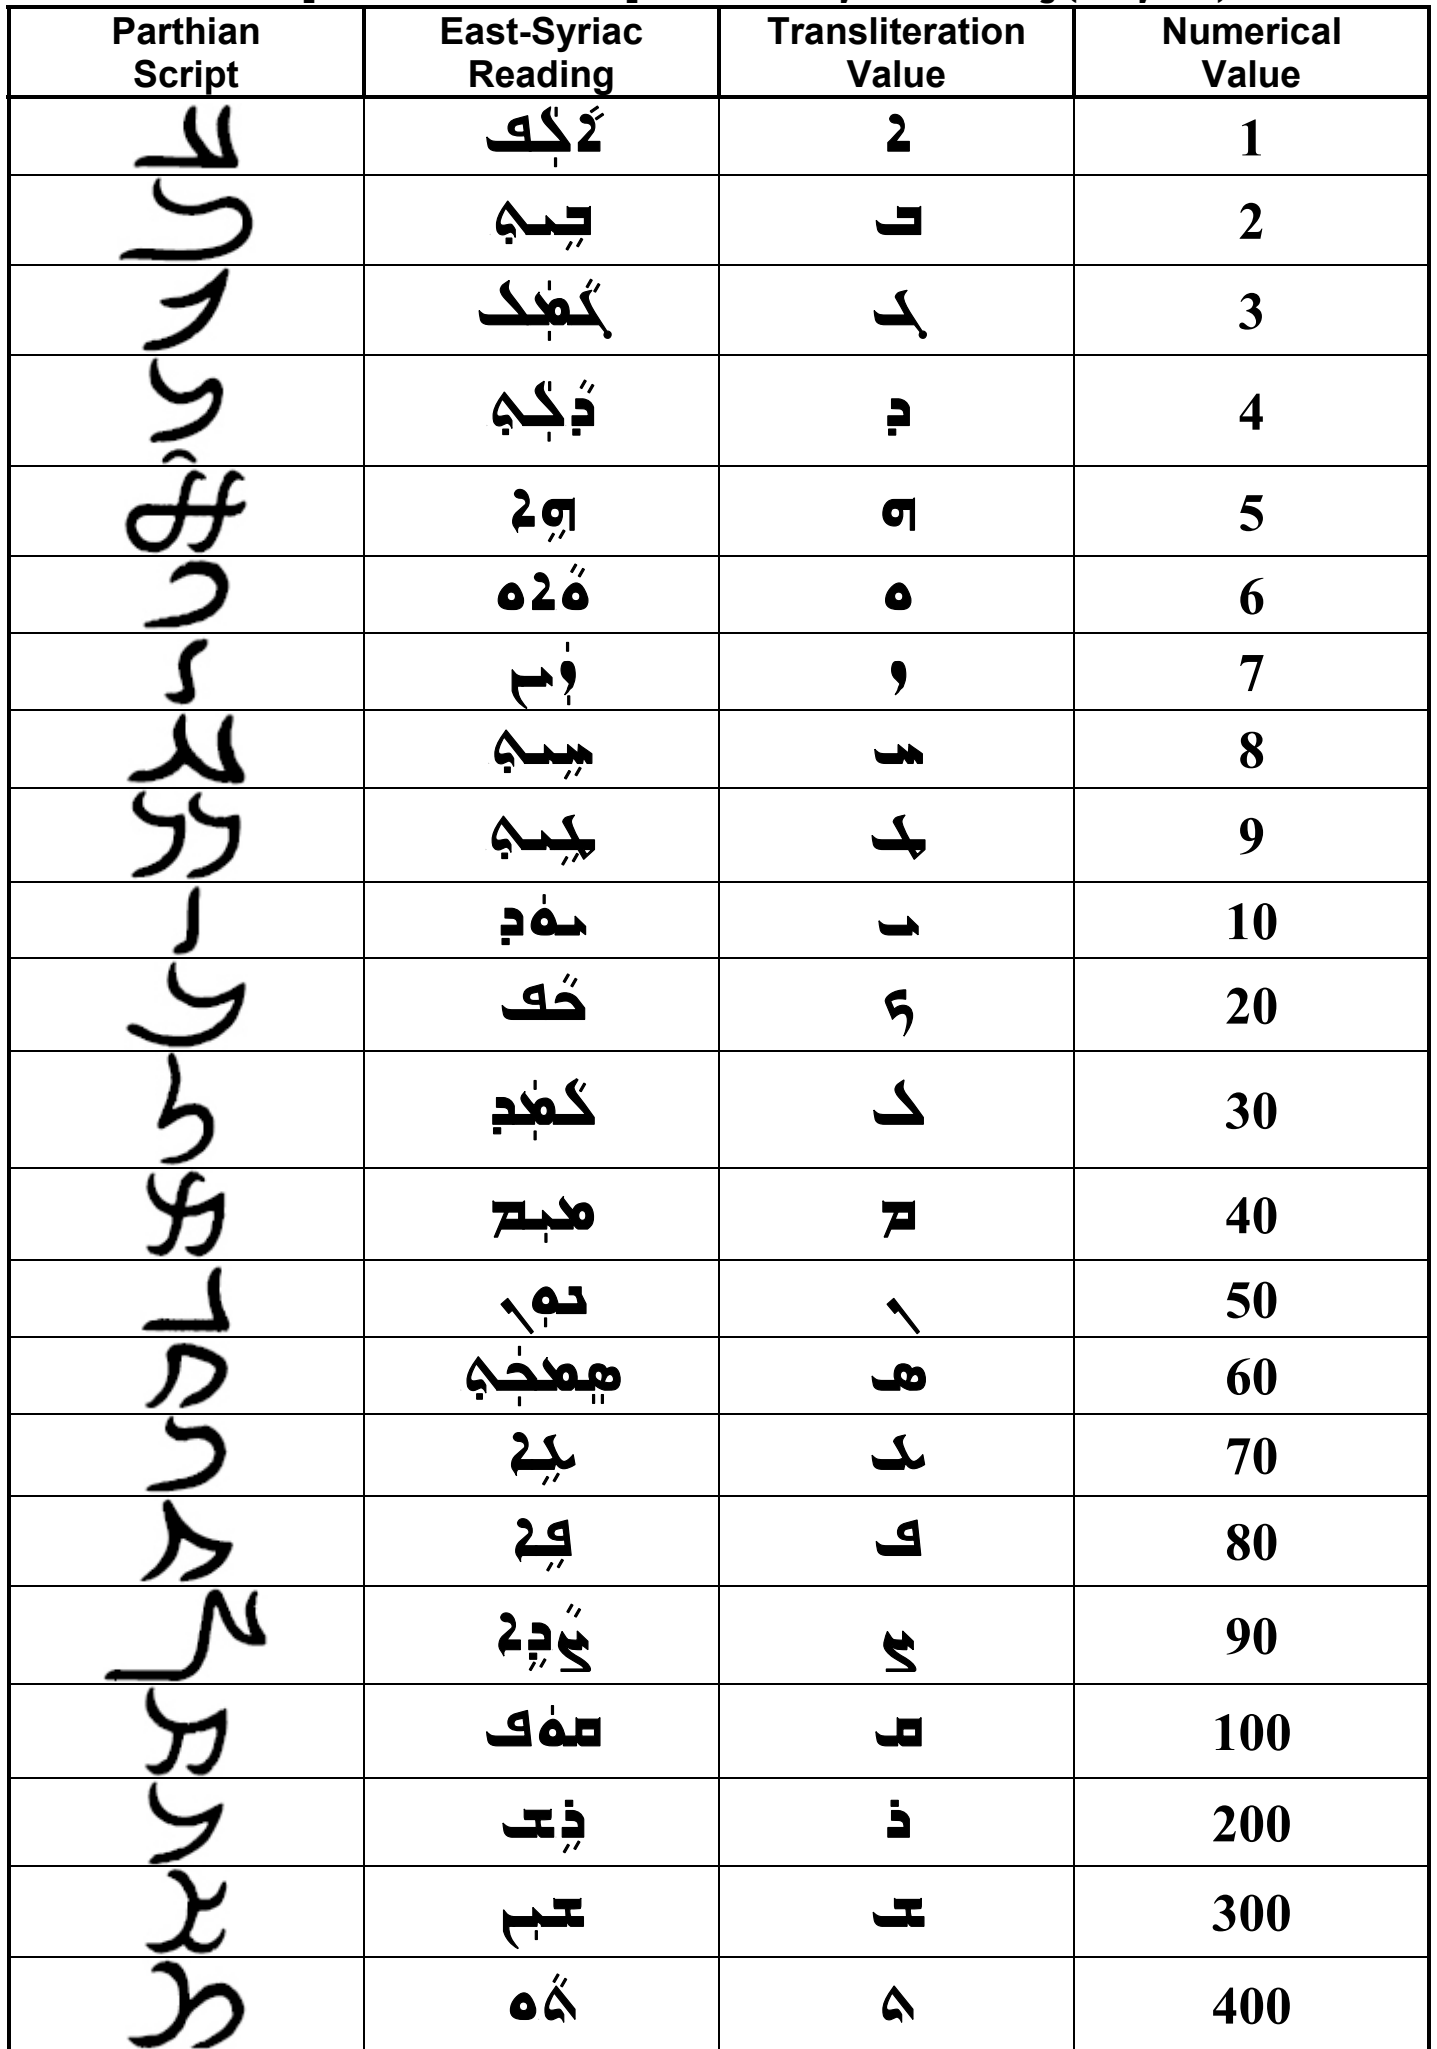 Parthian Script East-Syriac Reading Transliteration Value Numerical Value
𐭀 ܐܵܠܲܦ ܐ 1
𐭁 ܒܹܝܬ݂ ܒ 2
𐭂 ܓܵܡܲܠ ܓ 3
𐭃 ܕܵܠܲܬ݂ ܕ 4
𐭄 ܗܹܐ ܗ 5
𐭅 ܘܵܐܘ ܘ 6
𐭆 ܙܲܝܢ ܙ 7
𐭇 ܚܹܝܬ݂ ܚ 8
𐭈 ܛܹܝܬ݂ ܛ 9
𐭉 ܝܘܿܕ ܝ 10
𐭊 ܟܵܦ ܟ 20
𐭋 ܠܵܡܲܕ ܠ 30
𐭌 ܡܝܼܡ ܡ 40
𐭍 ܢܘܼܢ ܢ 50
𐭎 ܣܸܡܟܲܬ݂ ܣ 60
𐭏 ܥܹܐ ܥ 70
𐭐 ܦܹܐ ܦ 80
𐭑 ܨܵܕܹܐ ܨ 90
𐭒 ܩܘܿܦ ܩ 100
𐭓 ܪܹܫ ܪ 200
𐭔 ܫܝܼܢ ܫ 300
𐭕 ܬܵܘ ܬ 400